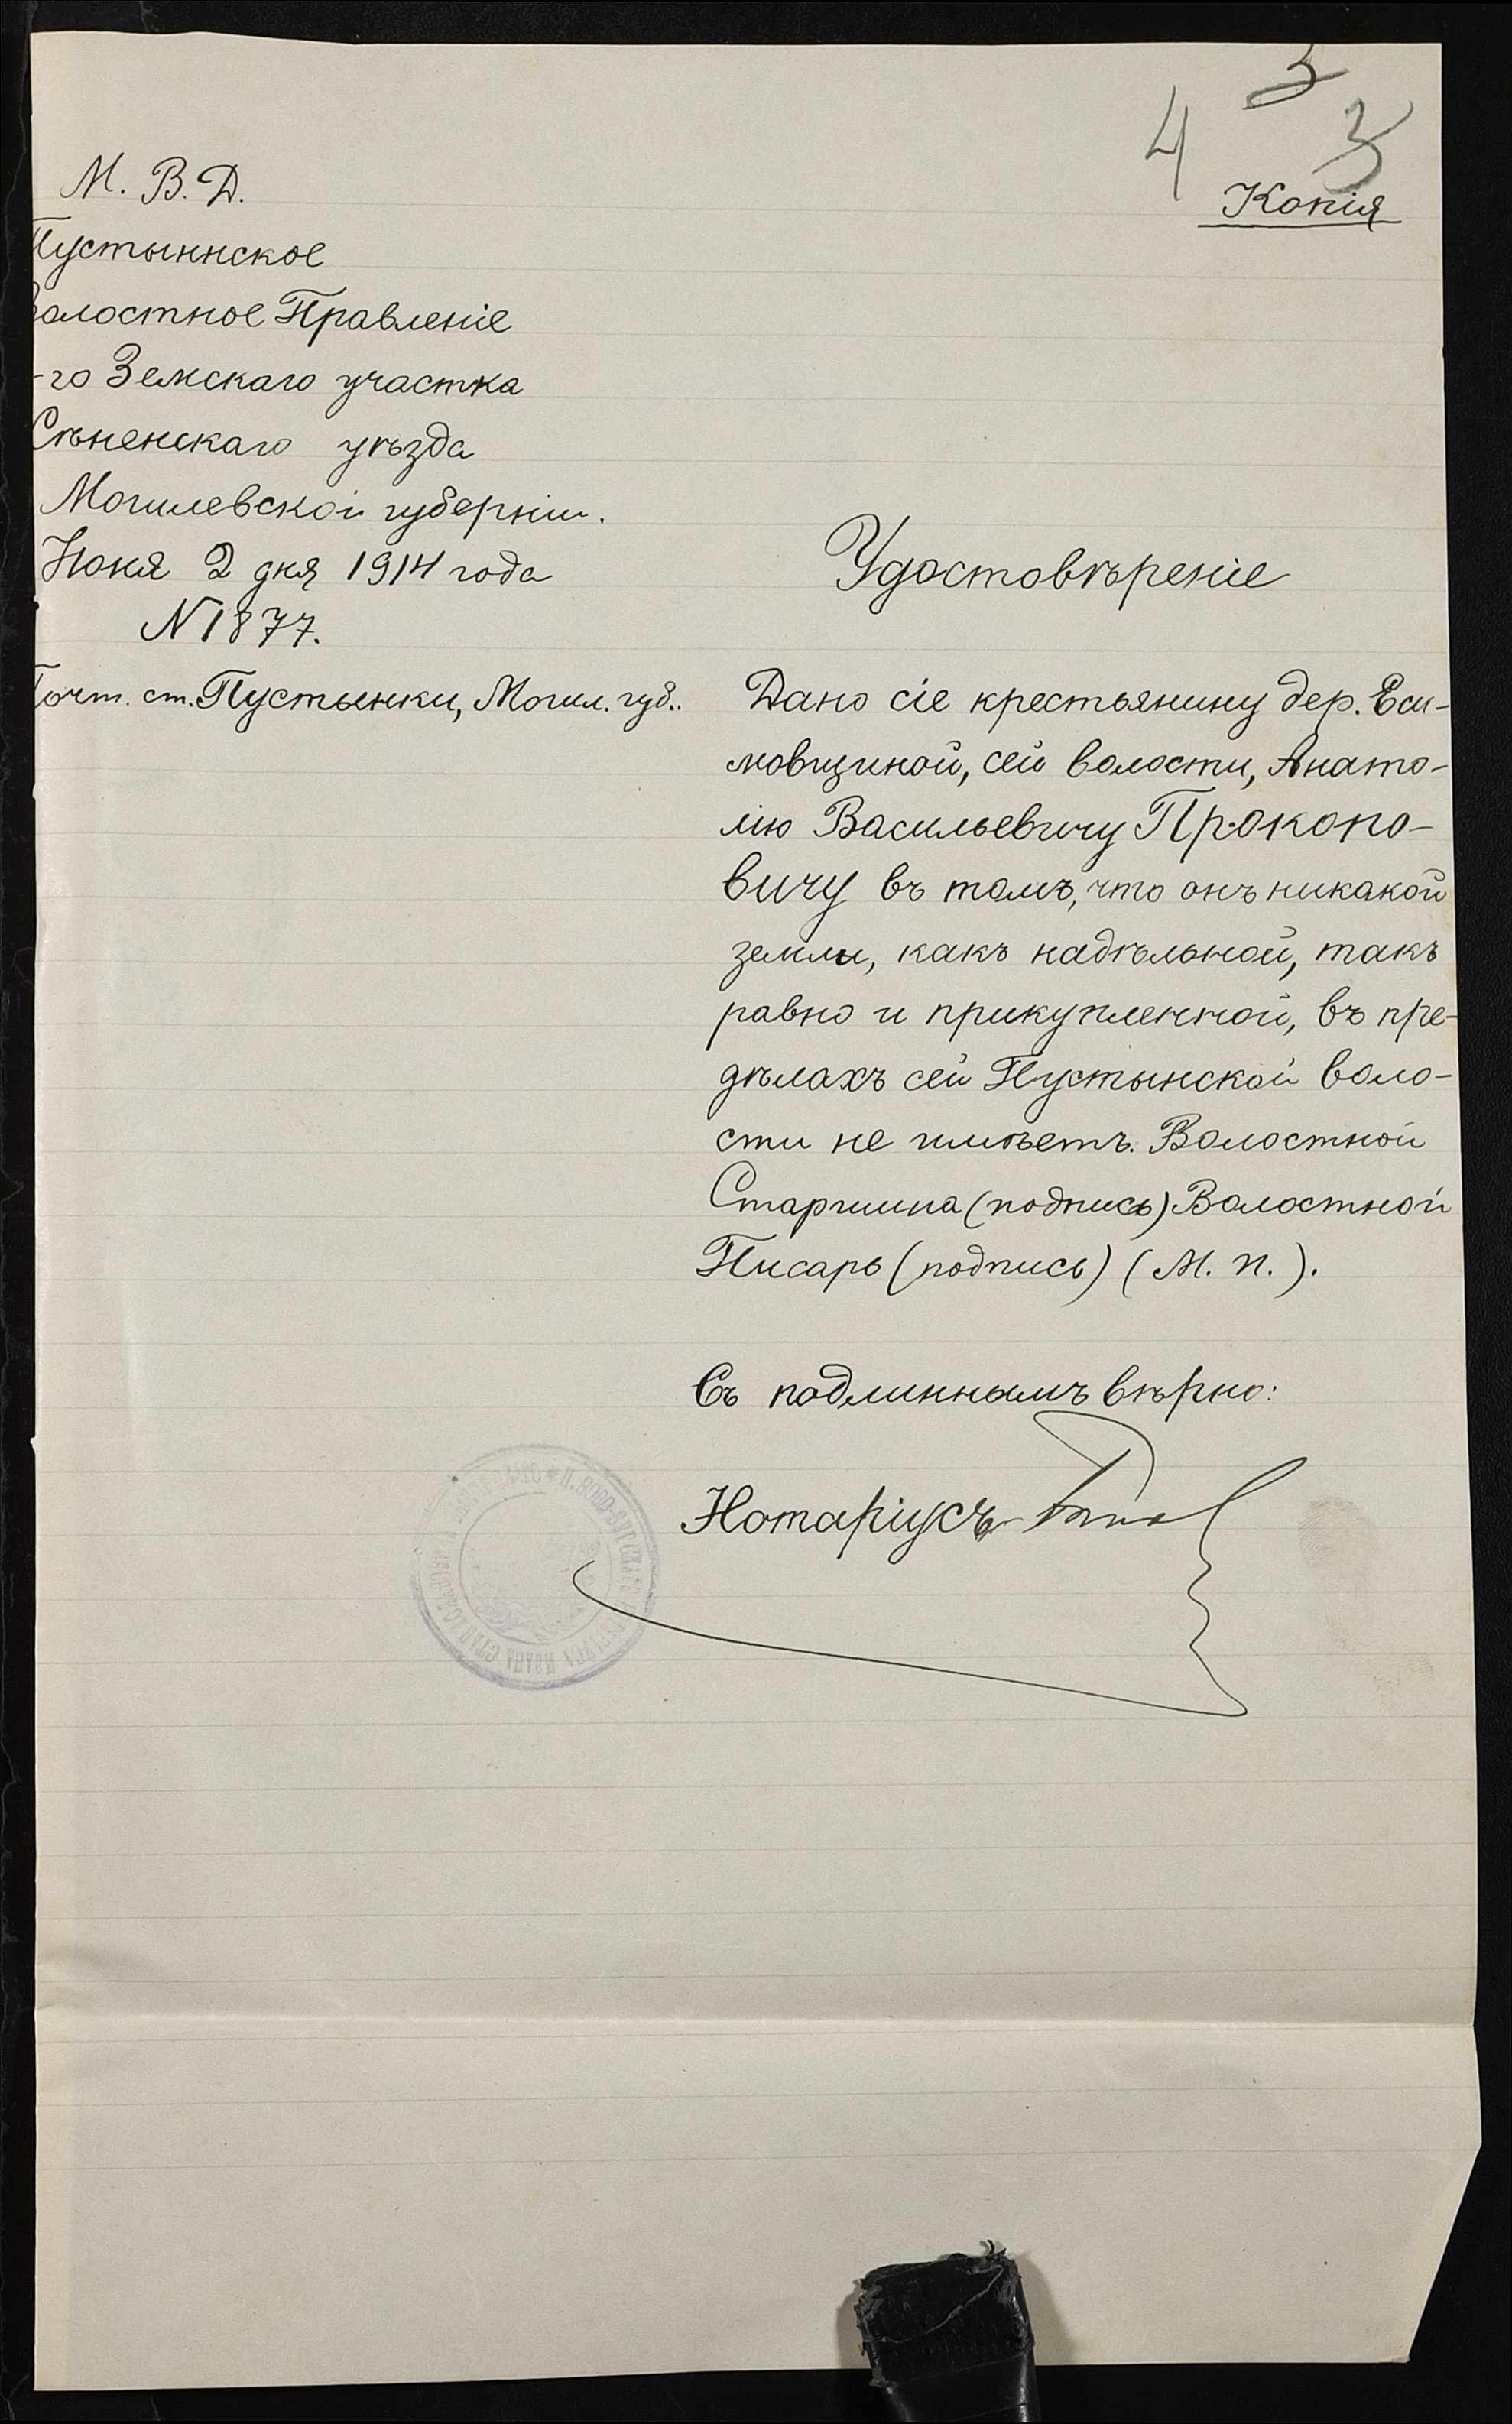 3
4 3
Копія
М. В. Д.
Пустыннское
Волостное Правленіе
-го Земскаго участка
Сѣненскаго уѣзда
Могилевской губерніи.
Іюня 2 дня 1914 года
N 1877.
Почт. ст. Пустынки, Могил. губ..
Удостовѣреніе
Дано сіе крестьянину дер. Еси-
мовщиной, сей волости, Анато-
лію Васильевичу Прокопо-
вичу въ томъ, что онъ никакой
земли, какъ надѣльной, такъ
равно и прикупленной, въ пре-
дѣлахъ сей Пустынской воло-
сти не имѣетъ. Волостной
Старшина (подпись) Волостной
Писарь (подпись) (М. П.).
Съ подлиннымъ вѣрно:
Нотаріусъ